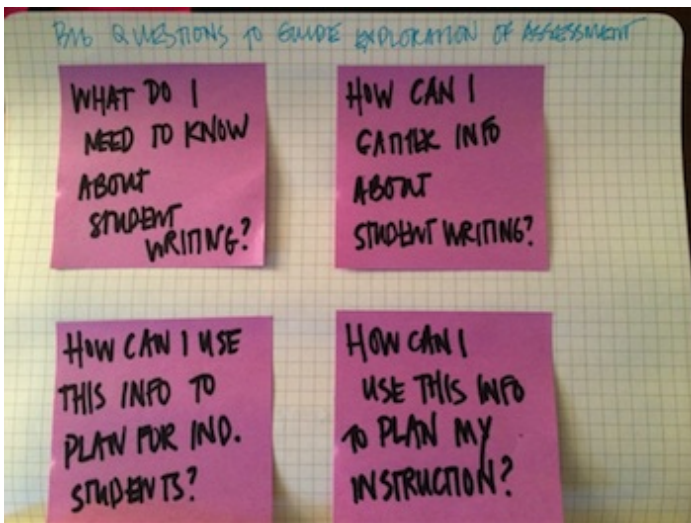 BIG QUESTIONS TO GUIDE EXPLORATION OF ASSESSMENT
WHAT DO I
NEED TO KNOW
ABOUT
STUDENT
WRITING?
HOW CAN I
GATHER INFO
ABOUT
STUDENT WRITING?
HOW CAN I USE
THIS INFO TO
PLAN FOR IND.
STUDENTS?
HOW CAN I
USE THIS INFO
TO PLAN MY
INSTRUCTION?